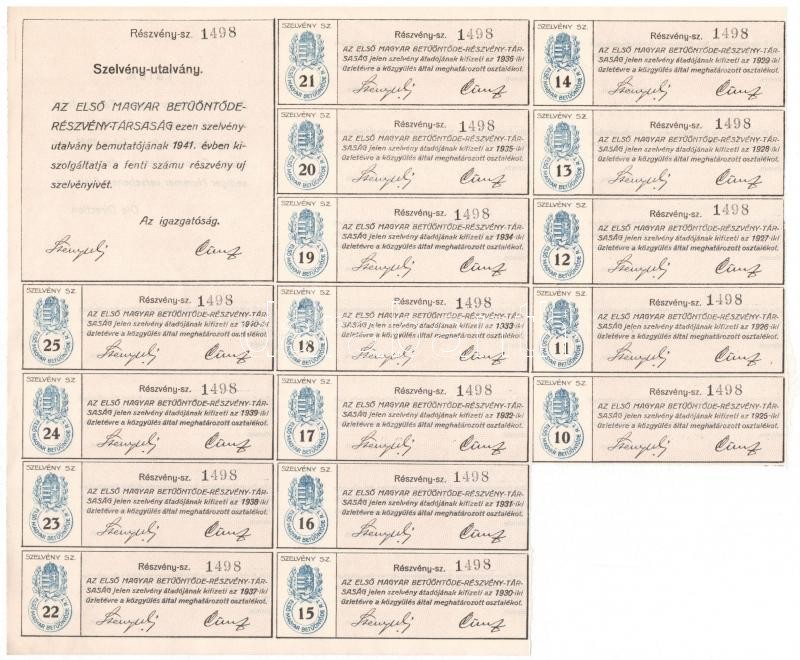 Részvény-sz. 1498
Szelvény-utalvány.
AZ ELSŐ MAGYAR BETŰÖNTŐDE-
RÉSZVÉNY-TÁRSASÁG ezen szelvény-
utalvány bemutatójának 1941. évben ki-
szolgáltatja a fenti számu részvény uj
szelvényívét.
Az igazgatóság.
SZELVÉNY SZ.
25
ELSŐ MAGYAR BETŰÖNTŐDE R. T.
Részvény-sz. 1498
AZ ELSŐ MAGYAR BETŰÖNTŐDE-RÉSZVÉNY-TÁR-
SASÁG jelen szelvény átadójának kifizeti az 1940-iki
üzletévre a közgyűlés által meghatározott osztalékot.
SZELVÉNY SZ.
24
ELSŐ MAGYAR BETŰÖNTŐDE R. T.
Részvény-sz. 1498
AZ ELSŐ MAGYAR BETŰÖNTŐDE-RÉSZVÉNY-TÁR-
SASÁG jelen szelvény átadójának kifizeti az 1939-iki
üzletévre a közgyűlés által meghatározott osztalékot.
SZELVÉNY SZ.
23
ELSŐ MAGYAR BETŰÖNTŐDE R. T.
Részvény-sz. 1498
AZ ELSŐ MAGYAR BETŰÖNTŐDE-RÉSZVÉNY-TÁR-
SASÁG jelen szelvény átadójának kifizeti az 1938-iki
üzletévre a közgyűlés által meghatározott osztalékot.
SZELVÉNY SZ.
22
ELSŐ MAGYAR BETŰÖNTŐDE R. T.
Részvény-sz. 1498
AZ ELSŐ MAGYAR BETŰÖNTŐDE-RÉSZVÉNY-TÁR-
SASÁG jelen szelvény átadójának kifizeti az 1937-iki
üzletévre a közgyűlés által meghatározott osztalékot.
SZELVÉNY SZ.
21
ELSŐ MAGYAR BETŰÖNTŐDE R. T.
Részvény-sz. 1498
AZ ELSŐ MAGYAR BETŰÖNTŐDE-RÉSZVÉNY-TÁR-
SASÁG jelen szelvény átadójának kifizeti az 1936-iki
üzletévre a közgyűlés által meghatározott osztalékot.
SZELVÉNY SZ.
20
ELSŐ MAGYAR BETŰÖNTŐDE R. T.
Részvény-sz. 1498
AZ ELSŐ MAGYAR BETŰÖNTŐDE-RÉSZVÉNY-TÁR-
SASÁG jelen szelvény átadójának kifizeti az 1935-iki
üzletévre a közgyűlés által meghatározott osztalékot.
SZELVÉNY SZ.
19
ELSŐ MAGYAR BETŰÖNTŐDE R. T.
Részvény-sz. 1498
AZ ELSŐ MAGYAR BETŰÖNTŐDE-RÉSZVÉNY-TÁR-
SASÁG jelen szelvény átadójának kifizeti az 1934-iki
üzletévre a közgyűlés által meghatározott osztalékot.
SZELVÉNY SZ.
18
ELSŐ MAGYAR BETŰÖNTŐDE R. T.
Részvény-sz. 1498
AZ ELSŐ MAGYAR BETŰÖNTŐDE-RÉSZVÉNY-TÁR-
SASÁG jelen szelvény átadójának kifizeti az 1933-iki
üzletévre a közgyűlés által meghatározott osztalékot.
SZELVÉNY SZ.
17
ELSŐ MAGYAR BETŰÖNTŐDE R. T.
Részvény-sz. 1498
AZ ELSŐ MAGYAR BETŰÖNTŐDE-RÉSZVÉNY-TÁR-
SASÁG jelen szelvény átadójának kifizeti az 1932-iki
üzletévre a közgyűlés által meghatározott osztalékot.
SZELVÉNY SZ.
16
ELSŐ MAGYAR BETŰÖNTŐDE R. T.
Részvény-sz. 1498
AZ ELSŐ MAGYAR BETŰÖNTŐDE-RÉSZVÉNY-TÁR-
SASÁG jelen szelvény átadójának kifizeti az 1931-iki
üzletévre a közgyűlés által meghatározott osztalékot.
SZELVÉNY SZ.
15
ELSŐ MAGYAR BETŰÖNTŐDE R. T.
Részvény-sz. 1498
AZ ELSŐ MAGYAR BETŰÖNTŐDE-RÉSZVÉNY-TÁR-
SASÁG jelen szelvény átadójának kifizeti az 1930-iki
üzletévre a közgyűlés által meghatározott osztalékot.
SZELVÉNY SZ.
14
ELSŐ MAGYAR BETŰÖNTŐDE R. T.
Részvény-sz. 1498
AZ ELSŐ MAGYAR BETŰÖNTŐDE-RÉSZVÉNY-TÁR-
SASÁG jelen szelvény átadójának kifizeti az 1929-iki
üzletévre a közgyűlés által meghatározott osztalékot.
SZELVÉNY SZ.
13
ELSŐ MAGYAR BETŰÖNTŐDE R. T.
Részvény-sz. 1498
AZ ELSŐ MAGYAR BETŰÖNTŐDE-RÉSZVÉNY-TÁR-
SASÁG jelen szelvény átadójának kifizeti az 1928-iki
üzletévre a közgyűlés által meghatározott osztalékot.
SZELVÉNY SZ.
12
ELSŐ MAGYAR BETŰÖNTŐDE R. T.
Részvény-sz. 1498
AZ ELSŐ MAGYAR BETŰÖNTŐDE-RÉSZVÉNY-TÁR-
SASÁG jelen szelvény átadójának kifizeti az 1927-iki
üzletévre a közgyűlés által meghatározott osztalékot.
SZELVÉNY SZ.
11
ELSŐ MAGYAR BETŰÖNTŐDE R. T.
Részvény-sz. 1498
AZ ELSŐ MAGYAR BETŰÖNTŐDE-RÉSZVÉNY-TÁR-
SASÁG jelen szelvény átadójának kifizeti az 1926-iki
üzletévre a közgyűlés által meghatározott osztalékot.
SZELVÉNY SZ.
10
ELSŐ MAGYAR BETŰÖNTŐDE R. T.
Részvény-sz. 1498
AZ ELSŐ MAGYAR BETŰÖNTŐDE-RÉSZVÉNY-TÁR-
SASÁG jelen szelvény átadójának kifizeti az 1925-iki
üzletévre a közgyűlés által meghatározott osztalékot.